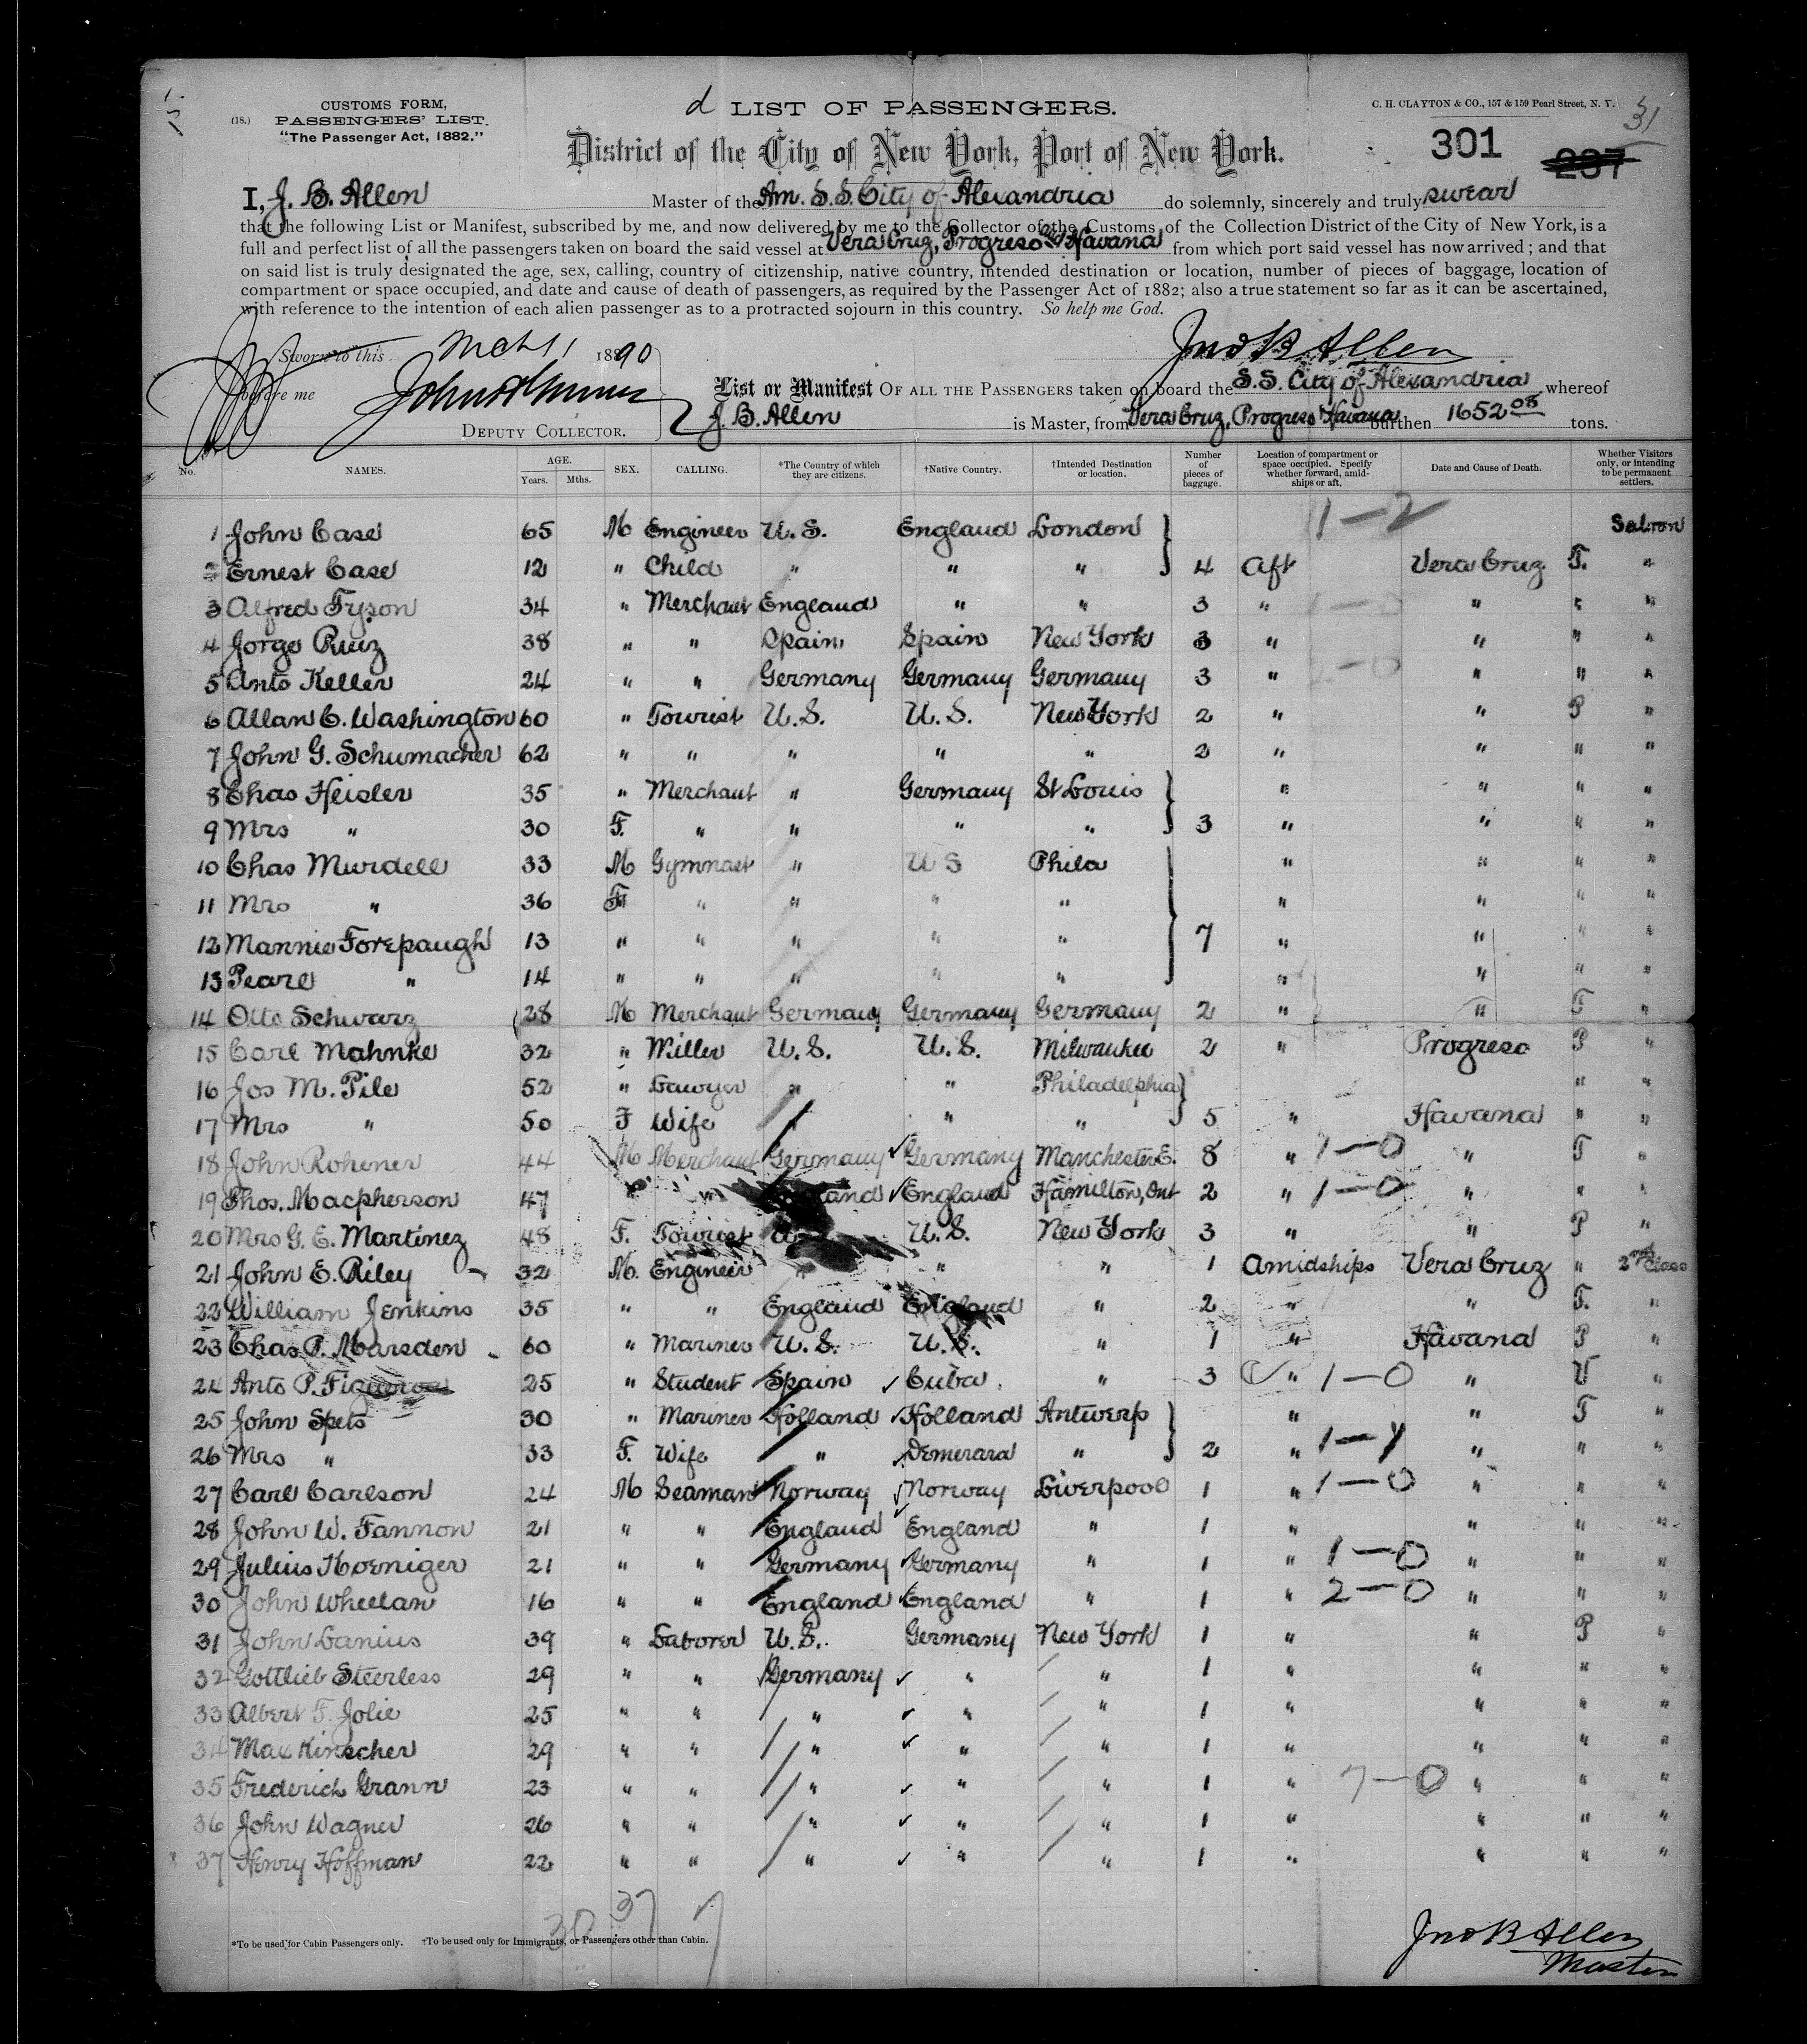 (18.)
CUSTOMS FORM,
PASSENGERS' LIST.
"The Passenger Act, 1882."
d LIST OF PASSENGERS.
C. H. CLAYTON & CO., 157 & 159 Pearl Street, N. Y.
31
District of the City of New York, Port of New York.
301 237
I, J. B. Allen Master of the Am. S. S. City of Alexandria do solemnly, sincerely and truly swear
that the following List or Manifest, subscribed by me, and now delivered by me to the Collector of the Customs of the Collection District of the City of New York, is a
full and perfect list of all the passengers taken on board the said vessel at Vera Cruz, Progreso and Havana from which port said vessel has now arrived; and that
on said list is truly designated the age, sex, calling, country of citizenship, native country, intended destination or location, number of pieces of baggage, location of
compartment or space occupied, and date and cause of death of passengers, as required by the Passenger Act of 1882; also a true statement so far as it can be ascertained,
with reference to the intention of each alien passenger as to a protracted sojourn in this country. So help me God.
Sworn to this Mch 1 1890
Jno B Allen
before me
DEPUTY COLLECTOR.
List or Manifest OF ALL THE PASSENGERS taken on board the S.S. City of Alexandria whereof
J. B. Allen is Master, from Vera Cruz, Progreso Havana burthen 1652 08 tons.
No. NAMES. AGE. Years. Mths. SEX. CALLING. *The Country of which they are citizens. †Native Country. †Intended Destination or location. Number of pieces of baggage. Location of compartment or space occupied. Specify whether forward, amidships or aft. Date and Cause of Death. Whether Visitors only, or intending to be permanent settlers.
1 John Case 65 M Engineer U.S. England London 1—2 Saloon
2 Ernest Case 12 " Child " " " 4 Aft Vera Cruz T. "
3 Alfred Tyson 34 " Merchant England " " 3 " 1—0 " " "
4 Jorge Ruiz 38 " " Spain Spain New York 3 " " " "
5 Anto Keller 24 " " Germany Germany Germany 3 " 2—0 " " "
6 Allan C. Washington 60 " Tourist U.S. U.S. New York 2 " " P "
7 John G. Schumacher 62 " " " " " 2 " " " "
8 Chas Heisler 35 " Merchant " Germany St Louis " " " "
9 Mrs " 30 F. " " " " 3 " " " "
10 Chas Murdell 33 M Gymnast " U S Phila " " " "
11 Mrs " 36 F " " " " " " " "
12 Mannie Forepaugh 13 " " " " " 7 " " " "
13 Pearl " 14 " " " " " " " " "
14 Otto Schwarz 28 M Merchant Germany Germany Germany 2 " " T "
15 Carl Mahnke 32 " Miller U.S. U.S. Milwaukee 2 " Progreso P "
16 Jos M. Pile 52 " Lawyer " " Philadelphia " "
17 Mrs " 50 F Wife " " 5 " Havana " "
18 John Rohener 44 M Merchant Germany Germany Manchester E. 8 " 1—0 " T "
19 Thos. Macpherson 47 England Hamilton, Ont 2 " 1—0 " " "
20 Mrs G. E. Martinez 48 F. Tourist U.S. New York 3 " " P "
21 John E. Riley 32 M. Engineer " " " 1 Amidships Vera Cruz " 2nd Class
22 William Jenkins 35 " " England England " 2 " " T. "
23 Chas P. Marsden 60 " Mariner U.S. U.S. " 1 " Havana P "
24 Anto P. Figueroa 25 " Student Spain Cuba " 3 " 1—0 " U "
25 John Spets 30 " Mariner Holland Holland Antwerp " " T "
26 Mrs " 33 F. Wife " Demerara " 2 " 1—1 " " "
27 Carl Carlson 24 M Seaman Norway Norway Liverpool 1 " 1—0 " " "
28 John W. Fannon 21 " " England England " 1 " " " "
29 Julius Koeniger 21 " " Germany Germany " 1 " 1—0 " " "
30 John Wheelan 16 " " England England " 1 " 2—0 " " "
31 John Lanius 39 " Laborer U.S. Germany New York 1 " " P "
32 Gottlieb Steerless 29 " " Germany " " 1 " " " "
33 Albert F. Jolie 25 " " " " " 1 " " " "
34 Max Kinscher 29 " " " " " 1 " " " "
35 Frederick Grann 23 " " " " " 1 " 7—0 " " "
36 John Wagner 26 " " " " " 1 " " " "
37 Henry Hoffman 22 " " " " " 1 " " " "
30 37 7
*To be used for Cabin Passengers only. †To be used only for Immigrants, or Passengers other than Cabin.
Jno B Allen
Master